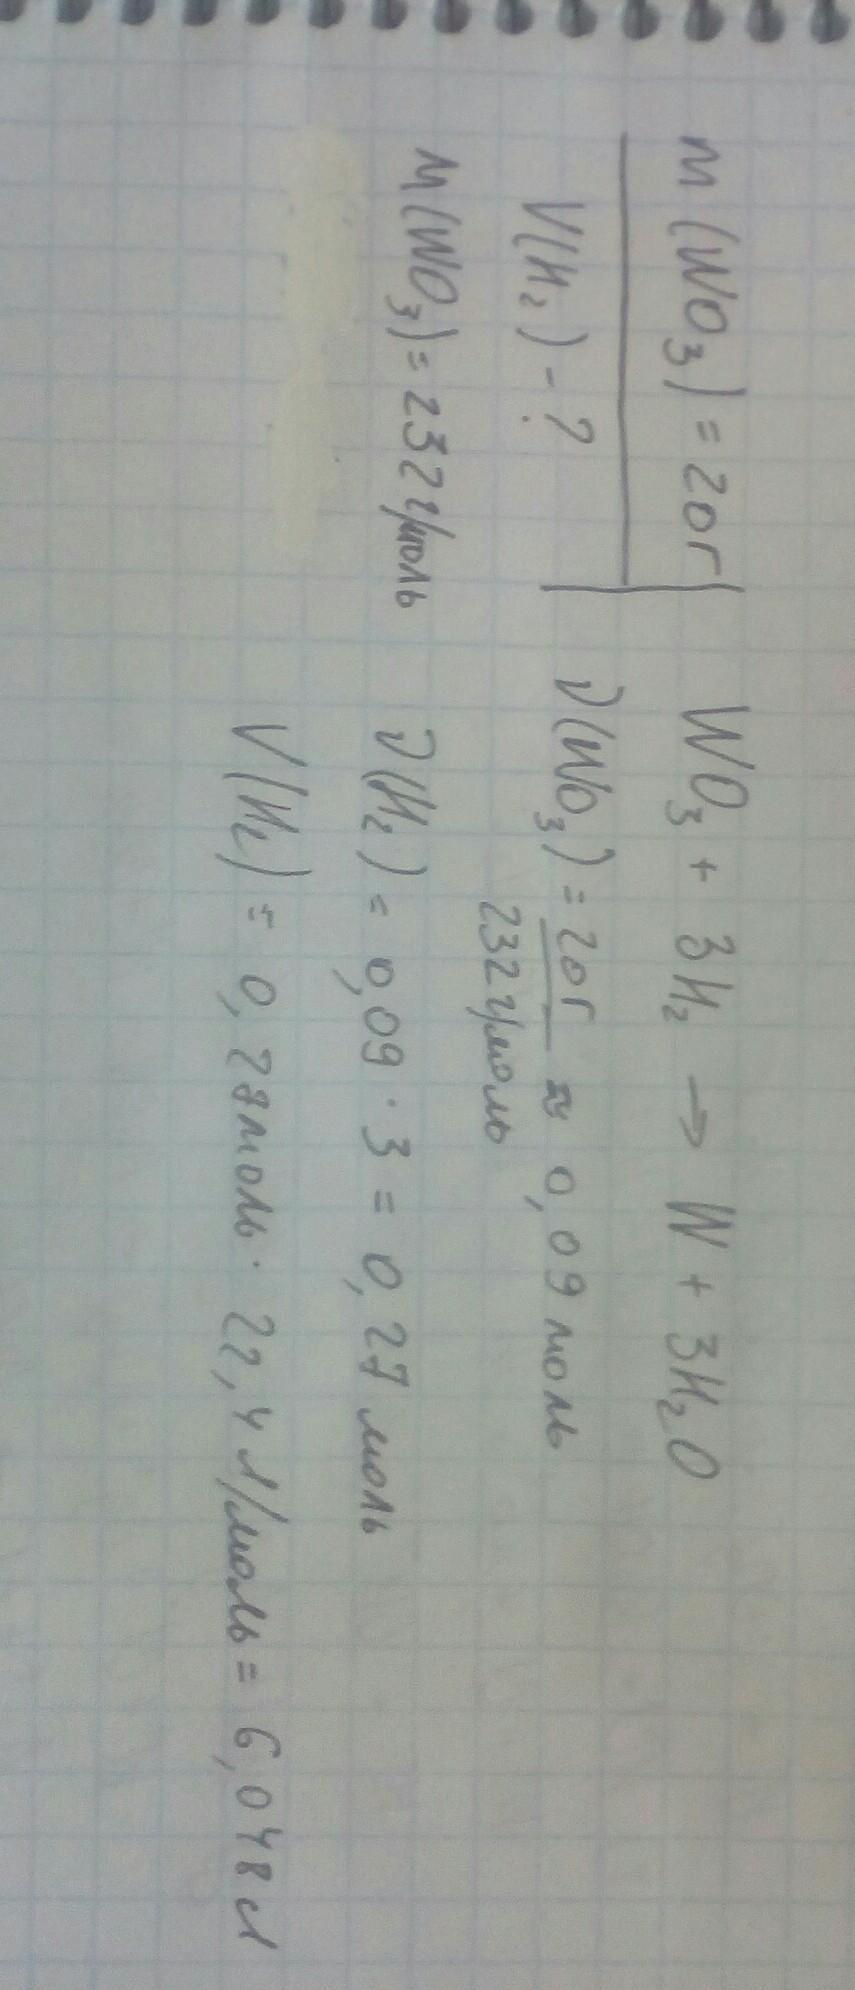 m (WO₃) = 20г
V(H₂) - ?
M(WO₃) = 232 г/моль
WO₃ + 3H₂ → W + 3H₂O
ν(WO₃) = 20г ≈ 0,09 моль
232 г/моль
ν(H₂) = 0,09 · 3 = 0,27 моль
V(H₂) = 0,28моль · 22,4 л/моль = 6,048 л